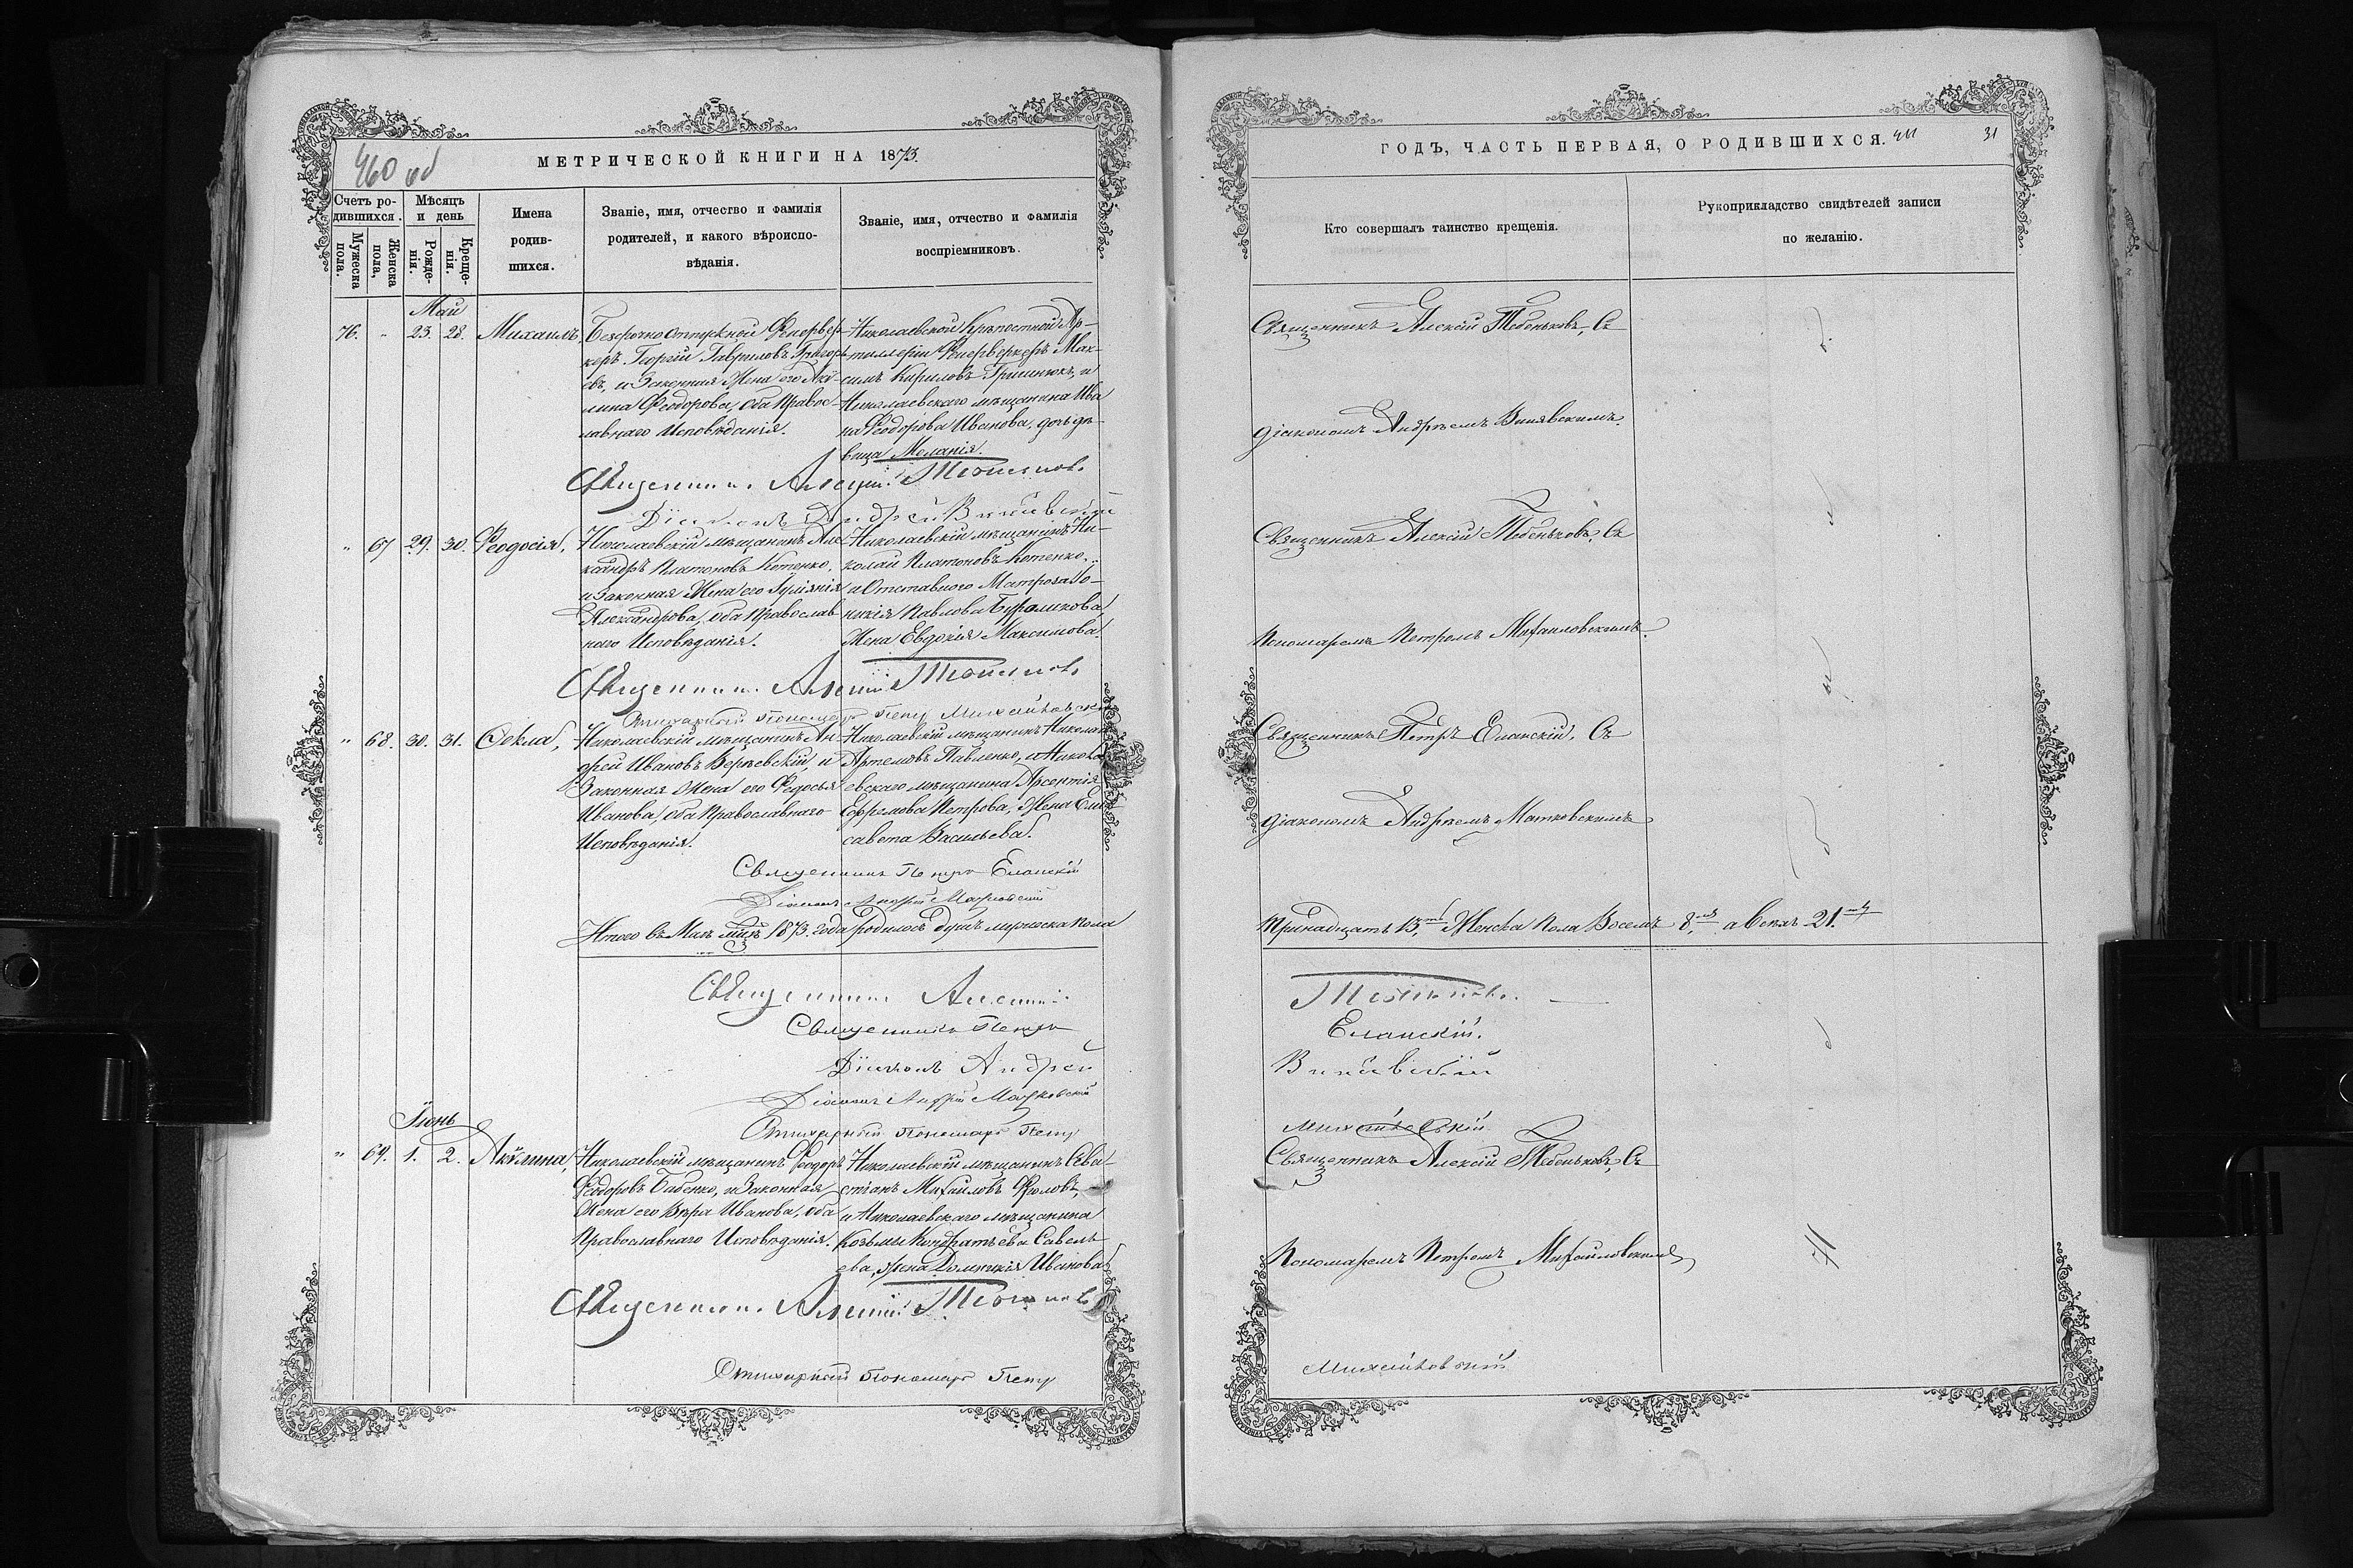 460 об
МЕТРИЧЕСКОЙ КНИГИ НА 1873.
Счетъ ро-
дившихся.
Мужеска пола.
Женска пола,
Мѣсяцъ
и день
Рожде-
нія.
Креще-
нія.
Имена
родив-
шихся.
Званіе, имя, отчество и фамилія
родителей, и какого вѣроиспо-
вѣданія.
Званіе, имя, отчество и фамилія
воспріемниковъ.
Май
76. " 23. 28. Михаилъ,
Безсрочноотпускной Феервер-
керъ Георгій Гавриловъ Григорь-
евъ, и Законная Жена его Аку-
лина Феодорова, оба Правос-
лавнаго Исповѣданія.
Николаевской Крѣпостной Ар-
тиллеріи Феерверкеръ Мак-
симъ Кириловъ Гришнюкъ, и
Николаевскаго мѣщанина Ива
на Феодорова Иванова, дочь дѣ-
вица Меланія.
Священникъ Алексій Тебеньковъ
Діаконъ Андрей Винявскій
" 67 29. 30. Феодосія,
Николаевскій мѣщанинъ Але-
ксандръ Платоновъ Котенко,
и Законная Жена его Іуліянія
Александрова, оба Православ
наго Исповѣданія.
Николаевскій мѣщанинъ Ни-
колай Платоновъ Котенко,
и Отставного Матроза Іо-
никія Павлова Бурлакова,
Жена Евдокія Максимова.
Священникъ Алексій Тебеньковъ
Стихарный Пономарь Петръ Михайловскій
" 68. 30. 31. Фекла,
Николаевскій мѣщанинъ Ан-
дрей Ивановъ Веревскій, и
Законная Жена его Федосья
Иванова, оба Православнаго
Исповѣданія.
Николаевскій мѣщанинъ Николай
Артемовъ Павленко, и Никола-
евскаго мѣщанина Арсентія
Ефремова Петрова, Жена Ели-
савета Васильева.
Священникъ Петръ Еланскій
Діаконъ Андрей Матковскій
Итого въ Маѣ мцѣ 1873. года родилось душъ мужеска пола
Священникъ Алексій
Священникъ Петръ
Діаконъ Андрей
Діаконъ Андрей Матковскій
Стихарный Пономарь Петръ
Іюнь
" 69. 1. 2. Акулина,
Николаевскій мѣщанинъ Феодоръ
Феодоровъ Бабенко, и Законная
Жена его Вѣра Иванова, оба
Православнаго Исповѣданія.
Николаевскій мѣщанинъ Сева-
стіанъ Михаиловъ Фроловъ,
и Николаевскаго мѣщанина
Козьмы Кондратьева Савель-
ева, жена Домникія Иванова
Священникъ Алексій Тебеньковъ
Стихарный Пономарь Петръ
ГОДЪ, ЧАСТЬ ПЕРВАЯ, О РОДИВШИХСЯ.
31
Кто совершалъ таинство крещенія.
Рукоприкладство свидѣтелей записи
по желанію.
Священникъ Алексій Тебеньковъ, Съ
Діакономъ Андреемъ Винявскимъ.
Священникъ Алексій Тебеньковъ, Съ
Пономаремъ Петромъ Михаиловскимъ.
Священникъ Петръ Еланскій, Съ
Діакономъ Андреемъ Матковскимъ
Тринадцать 13, Женска Пола Восемь 8, а всехъ 21.
Тебеньковъ.
Еланскій.
Винявскій
Михайловскій
Священникъ Алексій Тебеньковъ, Съ
Пономаремъ Петромъ Михаиловскимъ,
Михайловскій